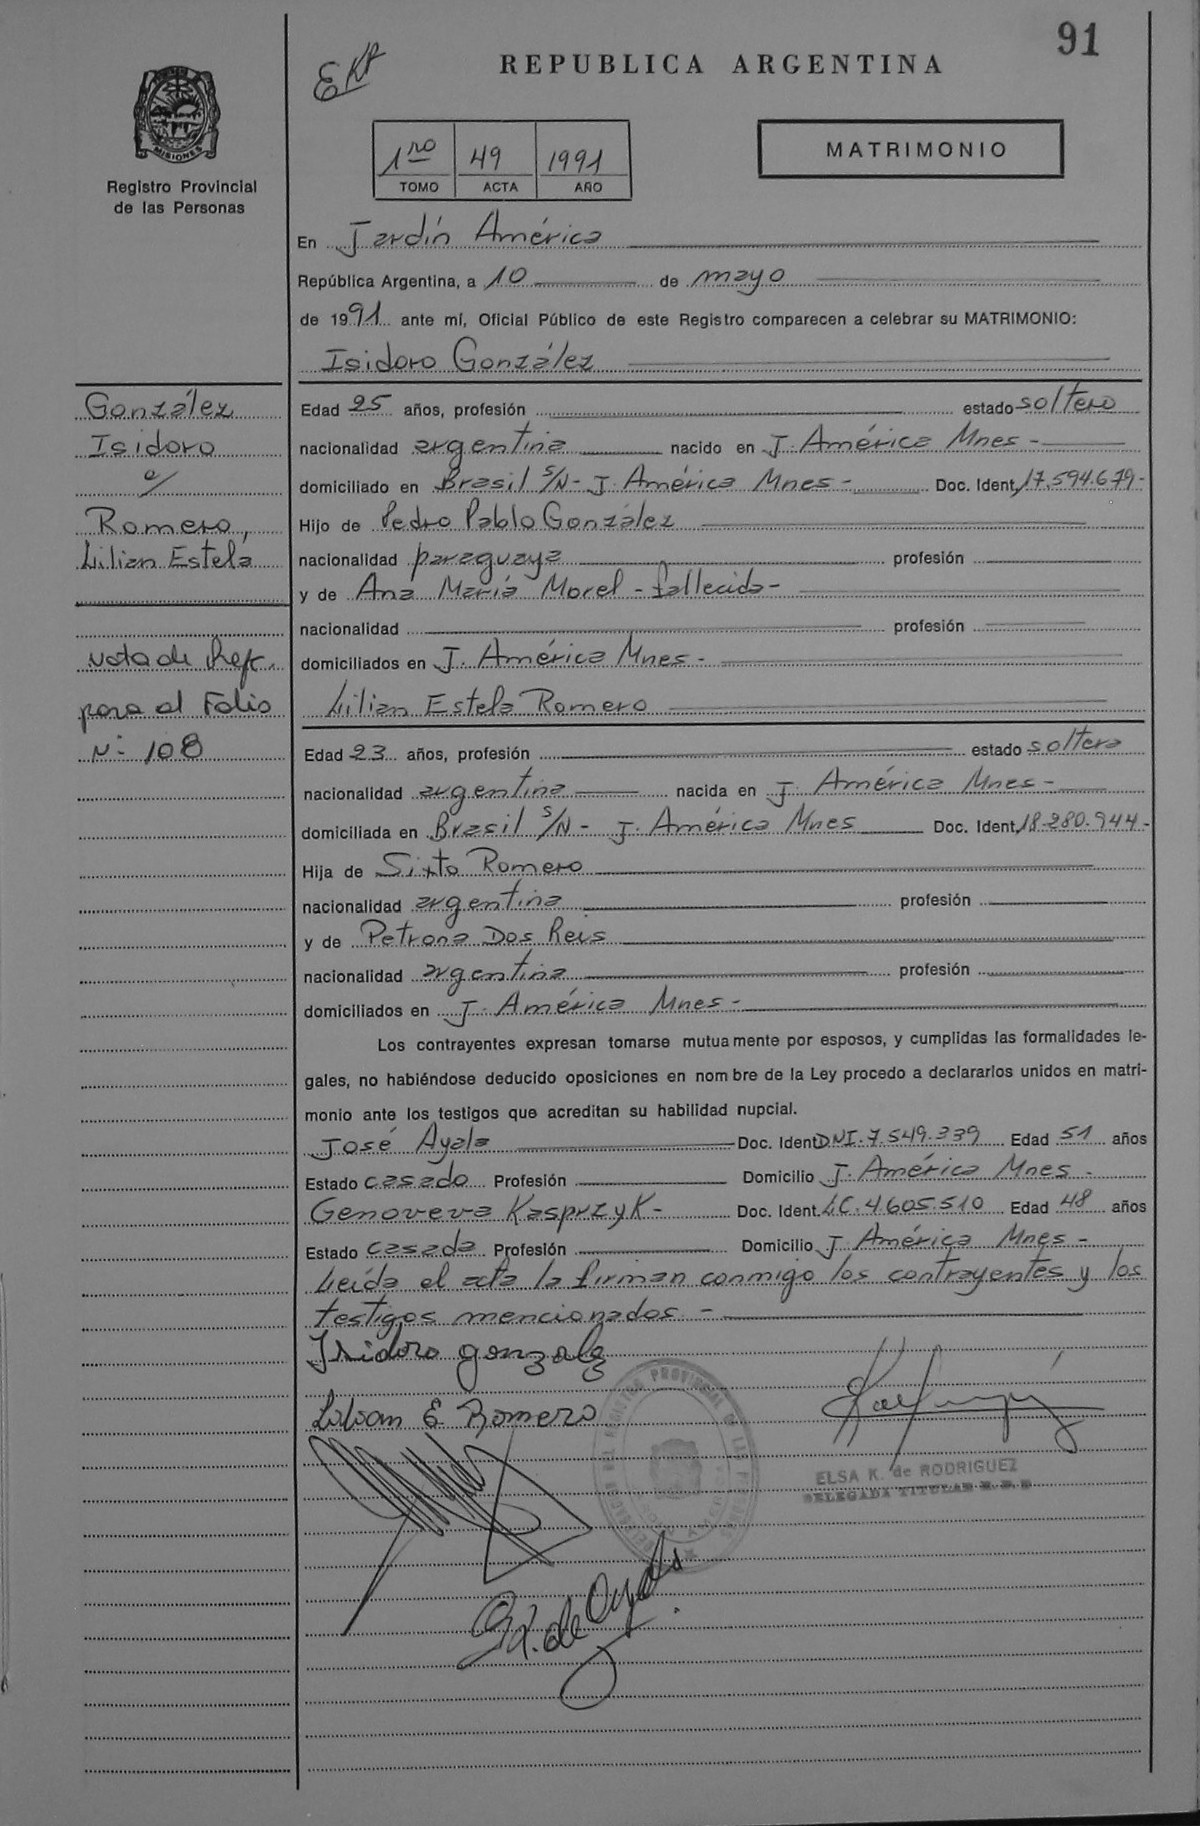 91
EKR
REPUBLICA ARGENTINA
MISIONES
Registro Provincial
de las Personas
1ro 49 1991
TOMO ACTA AÑO
MATRIMONIO
En Jardín América
República Argentina, a 10 de mayo
de 1991 ante mí, Oficial Público de este Registro comparecen a celebrar su MATRIMONIO:
Isidoro González
González
Isidoro
c/
Romero,
Lilian Estela
Nota de Ref.
para al Folio
Nº 108
Edad 25 años, profesión estado soltero
nacionalidad argentina nacido en J. América Mnes-
domiciliado en Brasil S/N- J. América Mnes- Doc. Ident. 17.594.679-
Hijo de Pedro Pablo González
nacionalidad paraguaya profesión
y de Ana María Morel - fallecida -
nacionalidad profesión
domiciliados en J. América Mnes-
Lilian Estela Romero
Edad 23 años, profesión estado soltera
nacionalidad argentina nacida en J. América Mnes-
domiciliada en Brasil S/N- J. América Mnes Doc. Ident. 18.280.944-
Hija de Sixto Romero
nacionalidad argentina profesión
y de Petrona Dos Reis
nacionalidad argentina profesión
domiciliados en J. América Mnes-
Los contrayentes expresan tomarse mutuamente por esposos, y cumplidas las formalidades le-
gales, no habiéndose deducido oposiciones en nombre de la Ley procedo a declararlos unidos en matri-
monio ante los testigos que acreditan su habilidad nupcial.
José Ayala Doc. Ident. DNI. 7.549.339 Edad 51 años
Estado casado Profesión Domicilio J. América Mnes-
Genoveva Kasprzyk- Doc. Ident. LC. 4.605.510 Edad 48 años
Estado casada Profesión Domicilio J. América Mnes-
Leída el acta la firman conmigo los contrayentes y los
testigos mencionados -
Isidoro gonzalez
Lilian E Romero
ELSA K. de RODRIGUEZ
DELEGADA TITULAR
G.K. de Ayala